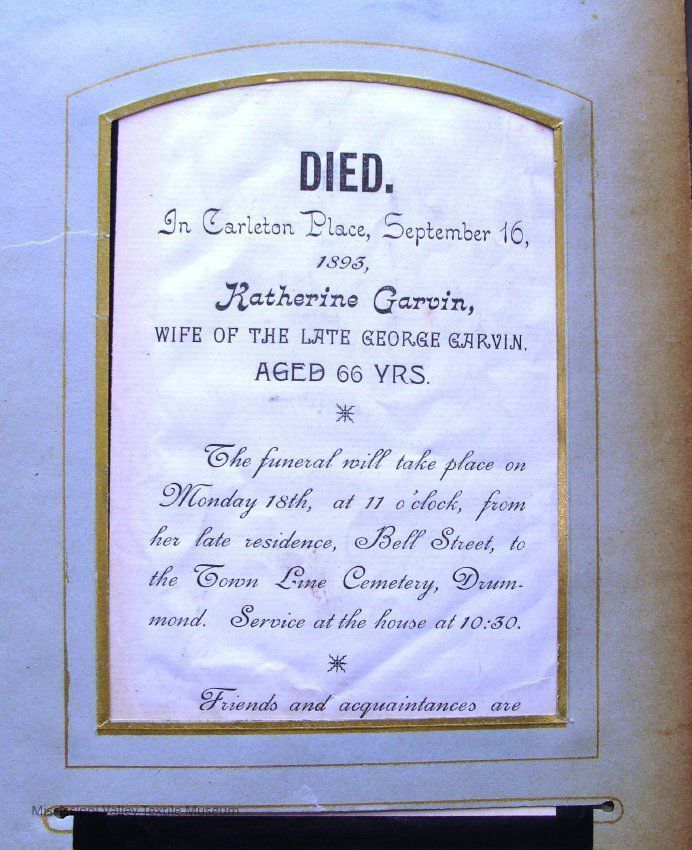 DIED.
In Carleton Place, September 16,
1893,
Katherine Garvin,
WIFE OF THE LATE GEORGE GARVIN.
AGED 66 YRS.
The funeral will take place on
Monday 18th, at 11 o'clock, from
her late residence, Bell Street, to
the Town Line Cemetery, Drum-
mond. Service at the house at 10:30.
Friends and acquaintances are
Mississippi Valley Textile Museum